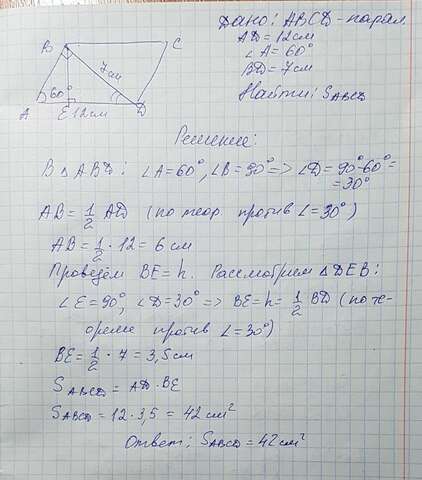 Дано: ABCD - парал.
AD = 12 см
∠A = 60°
BD = 7 см
Найти: S ABCD
B
C
7 см
60°
A
E 12 см
D
Решение:
В △ ABD: ∠A = 60°, ∠B = 90° => ∠D = 90° - 60° =
= 30°
AB = 1/2 AD (по теор. против ∠ = 30°)
AB = 1/2 · 12 = 6 см
Проведём BE = h. Рассмотрим △ DEB:
∠E = 90°, ∠D = 30° => BE = h = 1/2 BD (по те-
ореме против ∠ = 30°)
BE = 1/2 · 7 = 3,5 см
S ABCD = AD · BE
S ABCD = 12 · 3,5 = 42 см²
Ответ: S ABCD = 42 см²